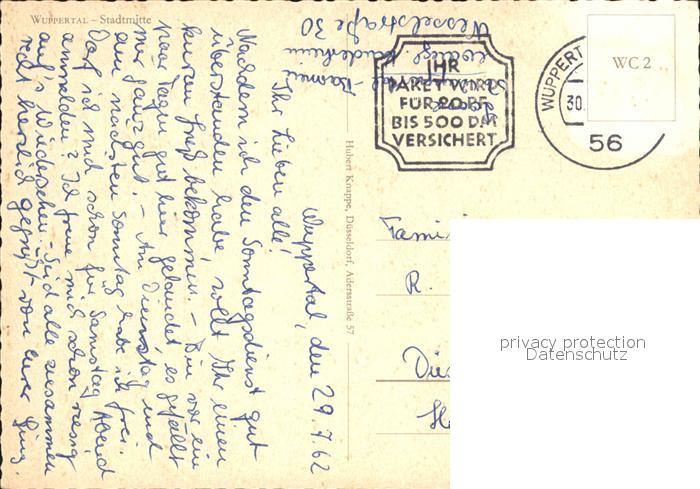 WUPPERTAL – Stadtmitte
Wuppertal, den 29.7.62
Ihr Lieben alle!
Nachdem ich den Sonntagsdienst gut
überstanden habe, sollt Ihr einen
kurzen Gruß bekommen. – Bin vor ein
paar Tagen gut hier gelandet, es gefällt
mir ganz gut. – Am Dienstag und
am nächsten Sonntag habe ich frei.
Darf ich mich schon für Samstag Abend
anmelden? Ich freue mich schon riesig
auf's Wiedersehen. – Seid alle zusammen
recht herzlich gegrüßt von Eurer
Wesselstraße 30
Hubert Knappe, Düsseldorf, Adersstraße 57
IHR
PAKET WIRD
FÜR 20 PF.
BIS 500 DM
VERSICHERT
WUPPERT
30.
56
WC 2
Fami
R.
privacy protection
Datenschutz